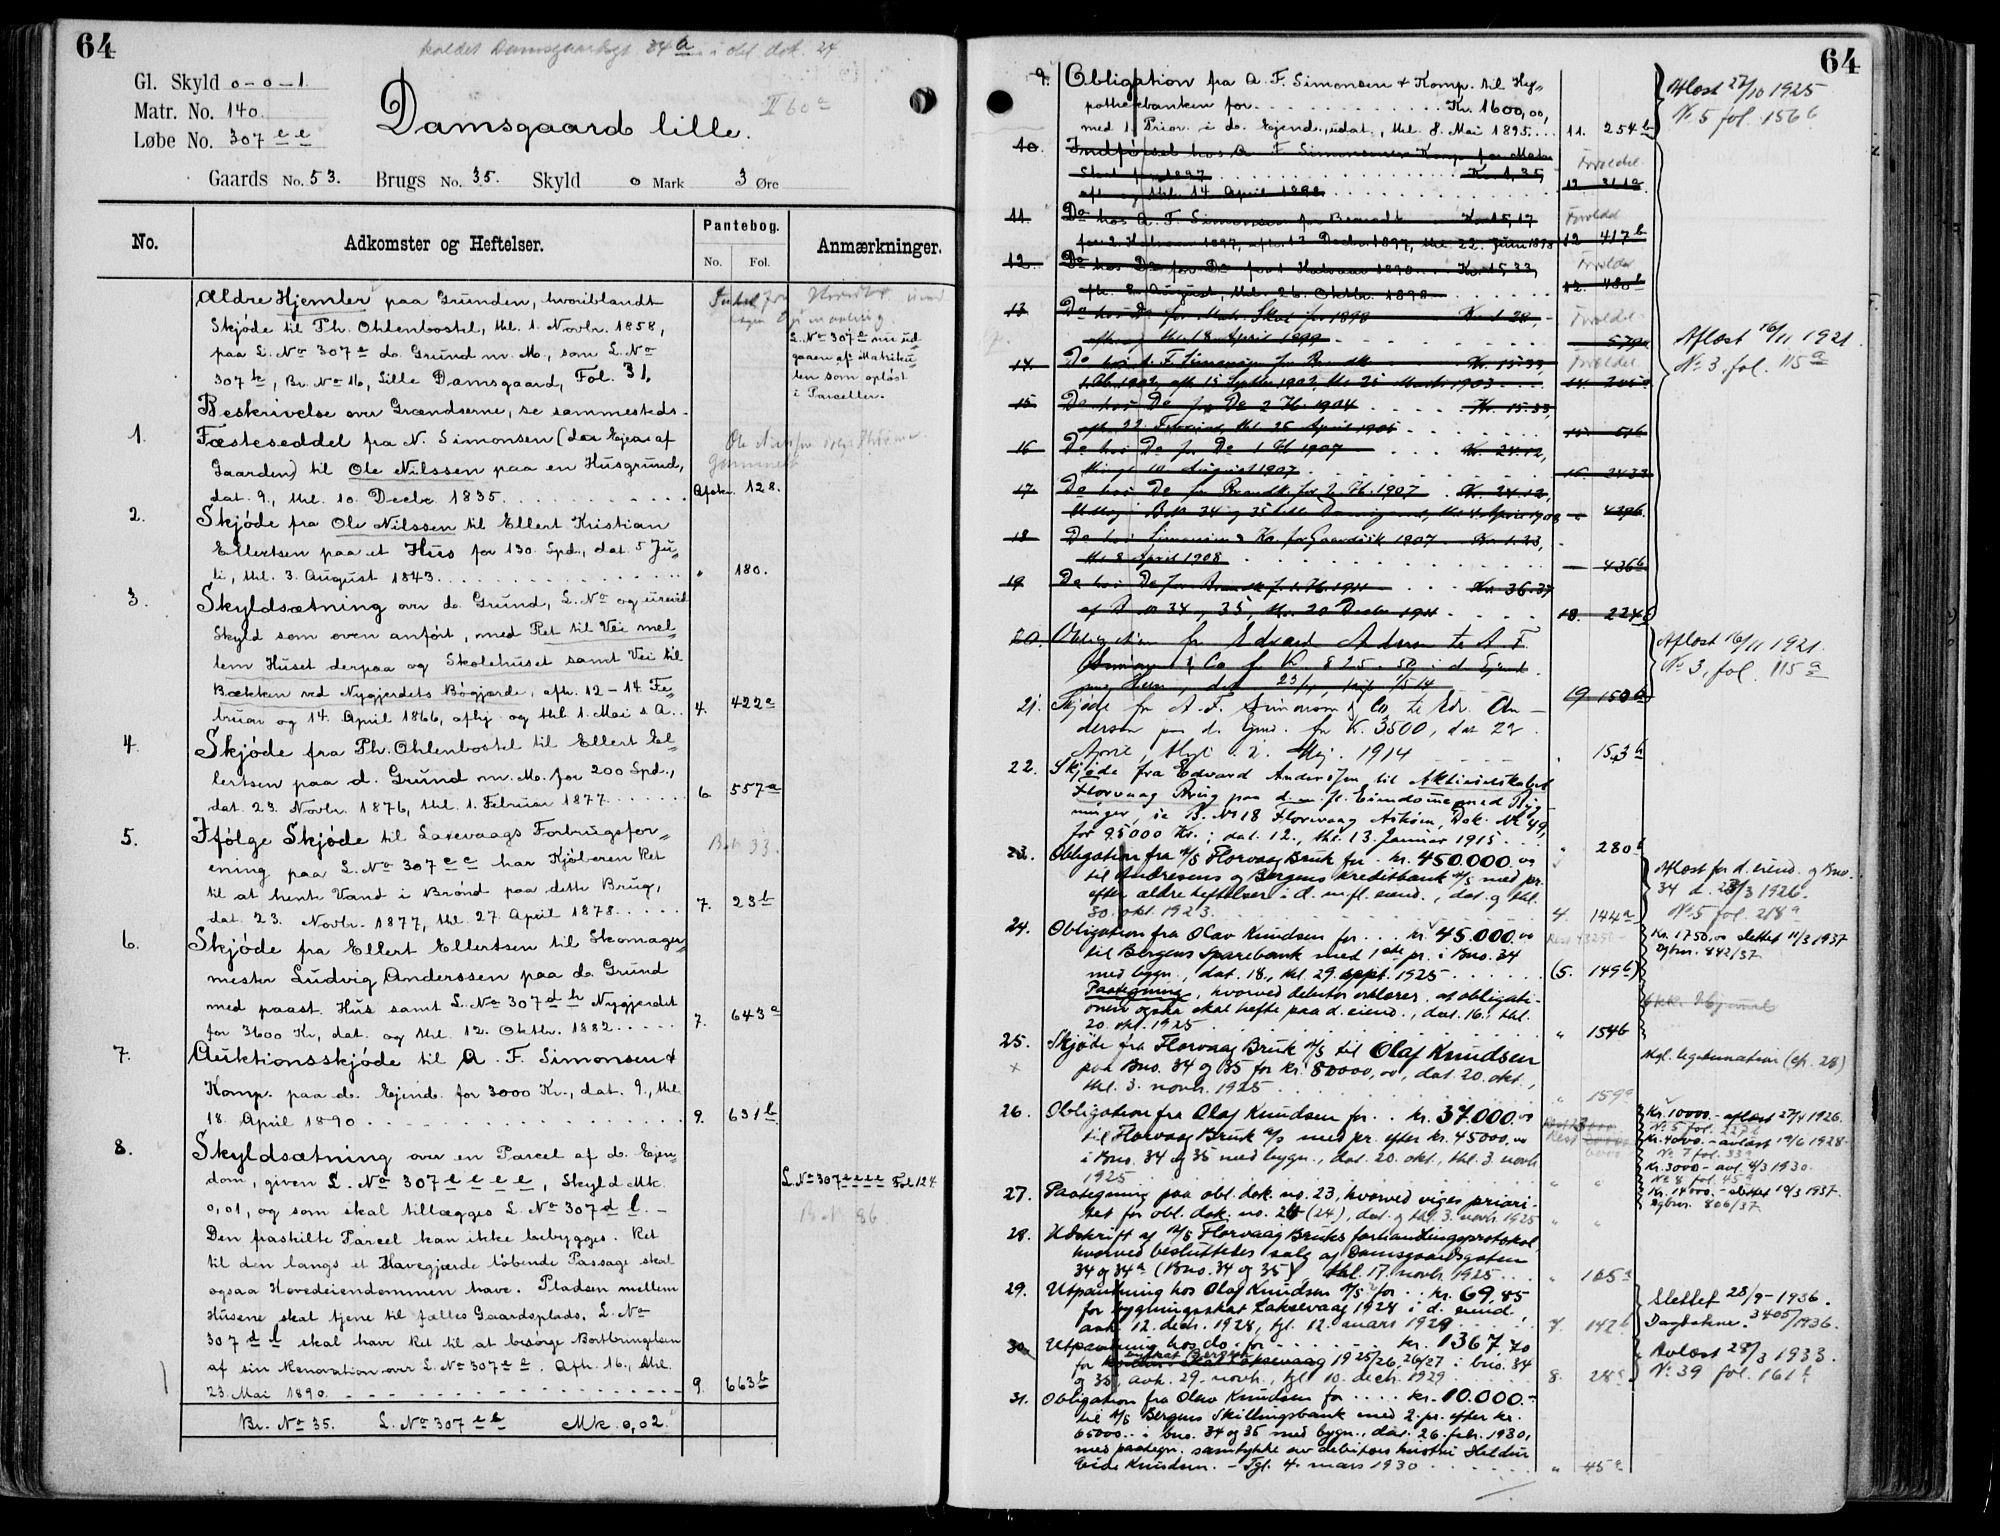 64
kaldet Damsgaardsgt. 34 a i del dok. 24
Gl. Skyld 0-0-1
Matr. No. 140
Løbe No. 307 e e
Damsgaard lille.
II 60 a
Gaards No. 53. Brugs No. 35. Skyld 0 Mark 3 Øre
No. Adkomster og Heftelser. Pantebog. No. Fol. Anmærkninger.
Ældre Hjemler paa Grunden, hvoriblandt
Skjøde til Th. Ohlenbostel, thl. 1. Novbr. 1858,
paa L. No 307 e do. Grund m. M., som L. No
307 b, Br. No 16, Lille Damsgaard, Fol. 31.
L. No 307 e nu ud-
gaaen af Matriku-
len som opløst
i Parceller.
Beskrivelse over Grændserne, se sammesteds.
1. Fæsteseddel fra N. Simonsen (da Ejer af
Gaarden) til Ole Nilssen paa en Husgrund,
dat. 9., thl. 10. Decbr. 1835. Afskr. 128.
2. Skjøde fra Ole Nilssen til Ellert Kristian
Ellertsen paa et Hus for 130 Spd., dat. 5 Ju-
li, thl. 3. August 1843. " 180.
3. Skyldsætning over do. Grund, L. No og urevid
Skyld som oven anført, med Ret til Vei mel-
lem Huset derpaa og Skolehuset samt Vei til
Bækken ved Nygjerdets Bøgjærde, afh. 12-14 Fe-
bruar og 14. April 1866, afhj. og thl. 1. Mai s. A. 4. 422 a
4. Skjøde fra Th. Ohlenbostel til Ellert El-
lertsen paa d. Grund m. M. for 200 Spd.,
dat. 23. Novbr. 1876, thl. 1. Februar 1877. 6. 557 a
5. Ifølge Skjøde til Laxevaags Forbrugsfor-
ening paa L. No 307 c c har Kjøberen Ret
til at hente Vand i Brønd paa dette Brug,
dat. 23. Novbr. 1877, thl. 27. April 1878. 7. 23 b
B. N. 33.
6. Skjøde fra Ellert Ellertsen til Skomager-
mester Ludvig Anderssen paa do Grund
med paast. Hus samt L. No 307 d h Nygjerdet
for 3600 Kr., dat. og thl. 12. Oktbr. 1882. 7. 643 a
7. Auktionsskjøde til A. F. Simonsen &
Komp. paa do. Ejend. for 3000 Kr., dat. 9., thl.
18. April 1890. 9. 631 b
8. Skyldsætning over en Parcel af do. Ejen-
dom, given L. No 307 e e e e, Skyld Mk.
0,01, og som skal tillægges L. No 307 d l. -
L. No 307 e e e e Fol. 124.
B. N. 86.
Den fraskilte Parcel kan ikke bebygges. Ret
til den langs et Havegjærde løbende Passage skal
ogsaa Hovedeiendommen have. Pladsen mellem
Husene skal tjene til fælles Gaardsplads. L. No
307 d l skal have Ret til at besørge Bortbringelsen
af sin Renovation over L. No 307 e e. Afh. 16., thl.
23. Mai 1890. 9. 663 b
Br. No 35. L. No 307 e e Mk. 0,02.
64
9. Obligation fra A. F. Simonsen & Komp. til Hy-
pothekbanken for Kr. 1600,00,
med 1. Prior. i do. Ejend., udat., thl. 8. Mai 1895. 11. 254 b
Afløst 27/10 1925
No 5 fol. 156 b
10. Indførsel hos A. F. Simonsen & Komp. for Matr.
Skat for 1897 Kr. 1,35,
afh. og thl. 14 April 1898 12 311 a
Forældet
11. Do hos A. F. Simonsen for Brandk. Kr. 15,17
for 2. Halvaar 1897, afh. 17 Decbr. 1897, thl. 22. Juni 1898 12 417 b
Forældet
12. Do hos Do for Do for 1 Halvaar 1898 Kr. 15,33,
afh. 2. August, thl. 26. Oktbr. 1898 12. 480 b
Forældet
13 Do hos Do for Matr. Skat for 1898 Kr. 1.28,
afh. og thl. 18 April 1899 579
Forældet
Afløst 16/11 1921
No 3. fol. 115 a
14. Do hos A. F. Simonsen for Brandk. Kr. 15.33,
1 Hb. 1902, afh. 15 Septbr. 1902, thl. 25 Marts 1903 14
Forældet
15 Do hos Do for Do 2 H. 1904 Kr. 15.33,
afh. 22. Februar, thl. 25 April 1905 15 516
16 Do hos Do for Do 1 H. 1907 Kr. 24.12,
thingl. 10 August 1907 16 243
17 Do hos Do for Brandk. for 2. H. 1907 Kr. 24.12,
Udlæg i B. No 34 og 35 Lille Damsgaard, thl. 4 April 1908 " 439 b
18 Do hos Simonsen & Ko. for Gaardsk. 1907 Kr. 1.23,
thl. 8 April 1908 436 b
19 Do hos Do for Brandk. f. 1. H. 1911 Kr. 36.37
af B. No 34 og 35, thl. 20 Decbr. 1911 18. 224 b
20. Obligation fra Edvard Andersen til A. F.
Simonsen & Co for Kr. 825.50 i d. Ejend.
med Huse, dat. 23/4, tingl. 2/5 14 19 153 b
Afløst 16/11 1921.
No 3. fol. 115 a
21. Skjøde fra A. F. Simonsen & Co til Edv. An-
dersen paa d. Ejend. for Kr. 3500, dat. 29.
April, thgl. 2. Mai 1914 " 153 b
22. Skjøde fra Edvard Andersen til Aktieselskabet
Florvaag Brug paa d. m. fl. Eiendomme med Byg-
ninger, se B. No 18 Florvaag Askøen, Dok. No 49,
for 95000 Kr.; dat. 12., thl. 13. Januar 1915. " 280 b
23. Obligation fra A/S Florvaag Bruk for kr. 450.000.00
til Andresens og Bergens Kreditbank A/S med pr.
efter ældre heftelser i d. m. fl. eiend., dat. og thl.
30. okt. 1923. 4. 144 a
Afløst for d. eiend. og Bno.
34 d. 23/3 1926.
No 5 fol. 218 a
24. Obligation fra Olav Knudsen for kr. 45.000.00
til Bergens Sparebank med 1ste pr. i Bno. 34
med bygn., dat. 18., thl. 29. sept. 1925 (5. 149 b)
Rest 43250-
Kr. 1750,00 slettet 11/3 1937
Dgbnr. 842/37.
Paategning, hvorved debitor erklærer, at obligati-
onen ogsaa skal hefte paa d. eiend., dat. 16., thl.
20. okt. 1925 " 154 b
Ikke Hjemmel
25. Skjøte fra Florvaag Bruk A/S til Olaf Knudsen
x
paa Bno. 34 og 35 for kr. 80000,00, dat. 20. okt.,
thl. 3. novbr. 1925 " 159 a
Mgl. legitimation (cfr. 28)
26. Obligation fra Olaf Knudsen for kr. 37.000.00
til Florvaag Bruk A/S med pr. efter kr. 45000,00
i Bno. 34 og 35 med bygn., dat. 20. okt., thl. 3. novbr.
1925 " "
Kr. 10000.- afløst 27/4 1926.
No 5 fol. 227 b
Kr. 4000.- avløst 19/6 1928.
No 7 fol. 33 a
Kr. 3000- avl. 4/3 1930.
No 8 fol. 45 a
Kr. 14000.- slettet 10/3 1937.
Dgbnr. 806/37.
27. Paategning paa obl. dok. no. 23, hvorved viges priori-
tet for obl. dok. no. 26 (24), dat. og thl. 3. novbr. 1925 " "
28. Utskrift af A/S Florvaag Bruks forhandlingsprotokol,
hvorved besluttedes salg av Damsgaardsgaten
34 og 34 a (Bno. 34 og 35) thl. 17. novbr. 1925 " 165 a
29. Utpantning hos Olaf Knudsen A/S for kr. 69,85
for bygningsskat Laksevaag 1928 i d. eiend.
avh. 12. decbr. 1928, tgl. 12. mars 1929 7. 142 b
Slettet 28/9-1936.
Dagboknr. 3405/1936.
30. Utpantning hos do. for kr. 1367,70
for inntekt Bergen 1925/26, 26/27 i bno. 34
og 35, avh. 29. novbr., tgl. 10. decbr. 1929 8. 28 a
Avløst 28/3 1933.
No 39 fol. 161 b
31. Obligation fra Olav Knudsen for kr. 10.000.-
til A/S Bergens Skillingsbank med 2. pr. efter kr.
65000.- i bno. 34 og 35 med bygn., dat. 26. febr. 1930,
med paategn. samtykke av debitors hustru Heldur
Eide Knudsen. - Tgl. 4. mars 1930 " 45 a